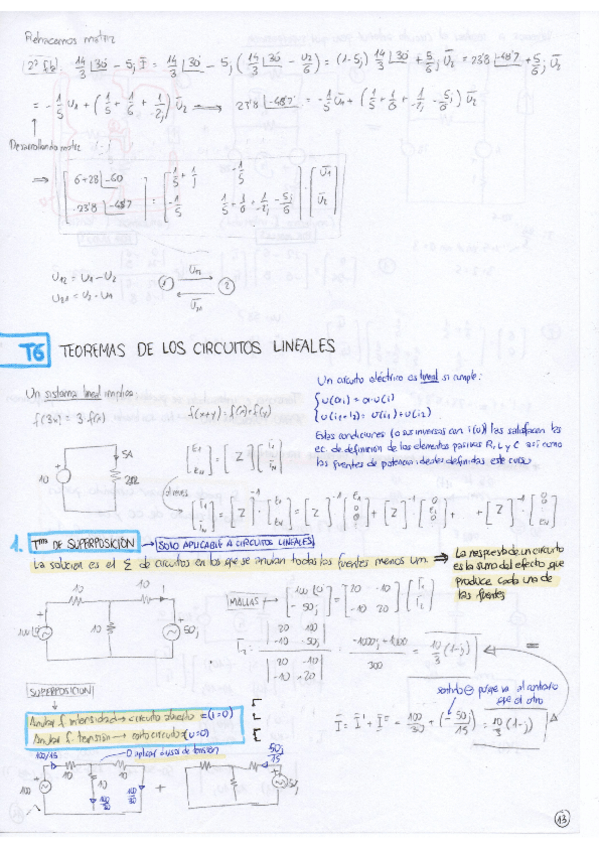 Rehacemos matriz
2ª fila 14/3 ∠30 - 5j Ī = 14/3 ∠30 - 5j (14/3 ∠30 - U2/6) = (1-5j) 14/3 ∠30 + 5/6 j Ū2 = 23'8 ∠-48'7 + 5/6 j Ū2
= -1/5 U1 + (1/5 + 1/6 + 1/-2j) Ū2 → 23'8 ∠-48'7 = -1/5 Ū1 + (1/5 + 1/6 + 1/-2j - 5j/6) Ū2
Desarrollando matriz
⇒ [6+28 ∠-60
23'8 ∠-48'7] = [1/5 + 1/j -1/5
-1/5 1/5 + 1/6 + 1/-2j - 5j/6] · [Ū1
Ū2]
U12 = U1 - U2
U21 = U2 - U1
1 Ū12 2
Ū21
T6 TEOREMAS DE LOS CIRCUITOS LINEALES
Un sistema lineal implica
f(3x) = 3 f(x) f(x+y) = f(x) + f(y)
Un circuito eléctrico es lineal si cumple:
u(ai) = a·u(i)
u(i1+i2) = u(i1) + u(i2)
Estas condiciones (o sus inversas con i(u)) las satisfacen las
ec de definición de los elementos pasivos R, L y C así como
las fuentes de potencia ideales definidas este curso
10 5A 2Ω
[E1
EN] = [Z] [i1
iN]
[i1
iN] = [Z]⁻¹ [E1
EN] = [Z]⁻¹ [E1
0
0] + [Z]⁻¹ [0
Ej
0] + + [Z]⁻¹ [0
0
EN]
1. Tma DE SUPERPOSICIÓN → SOLO APLICABLE A CIRCUITOS LINEALES
La solución es el Σ de circuitos en los que se anulan todas las fuentes menos una ⇒ La respuesta de un circuito
es la suma del efecto que
produce cada una de
las fuentes
10 10
100∠0 10 50j
MALLAS → [100∠0
-50j] = [20 -10
-10 20] [Ī1
Ī2]
Ī2 = |20 100
-10 -50j| / |20 -10
-10 20| = -1000j + 1000 / 300 = 10/3 (1-j)
SUPERPOSICIÓN
Anular f. intensidad → circuito abierto (i=0)
Anular f. tensión → cortocircuito (u=0)
sentido ⊖ porque va al contrario
que el otro
Ī = Ī' + Ī'' = 100/30 + (-50j/15) = 10/3 (1-j)
aplicar divisor de tensión
100/15 10 10
100 10 100/30 100/30
+
50j/15
50j
13